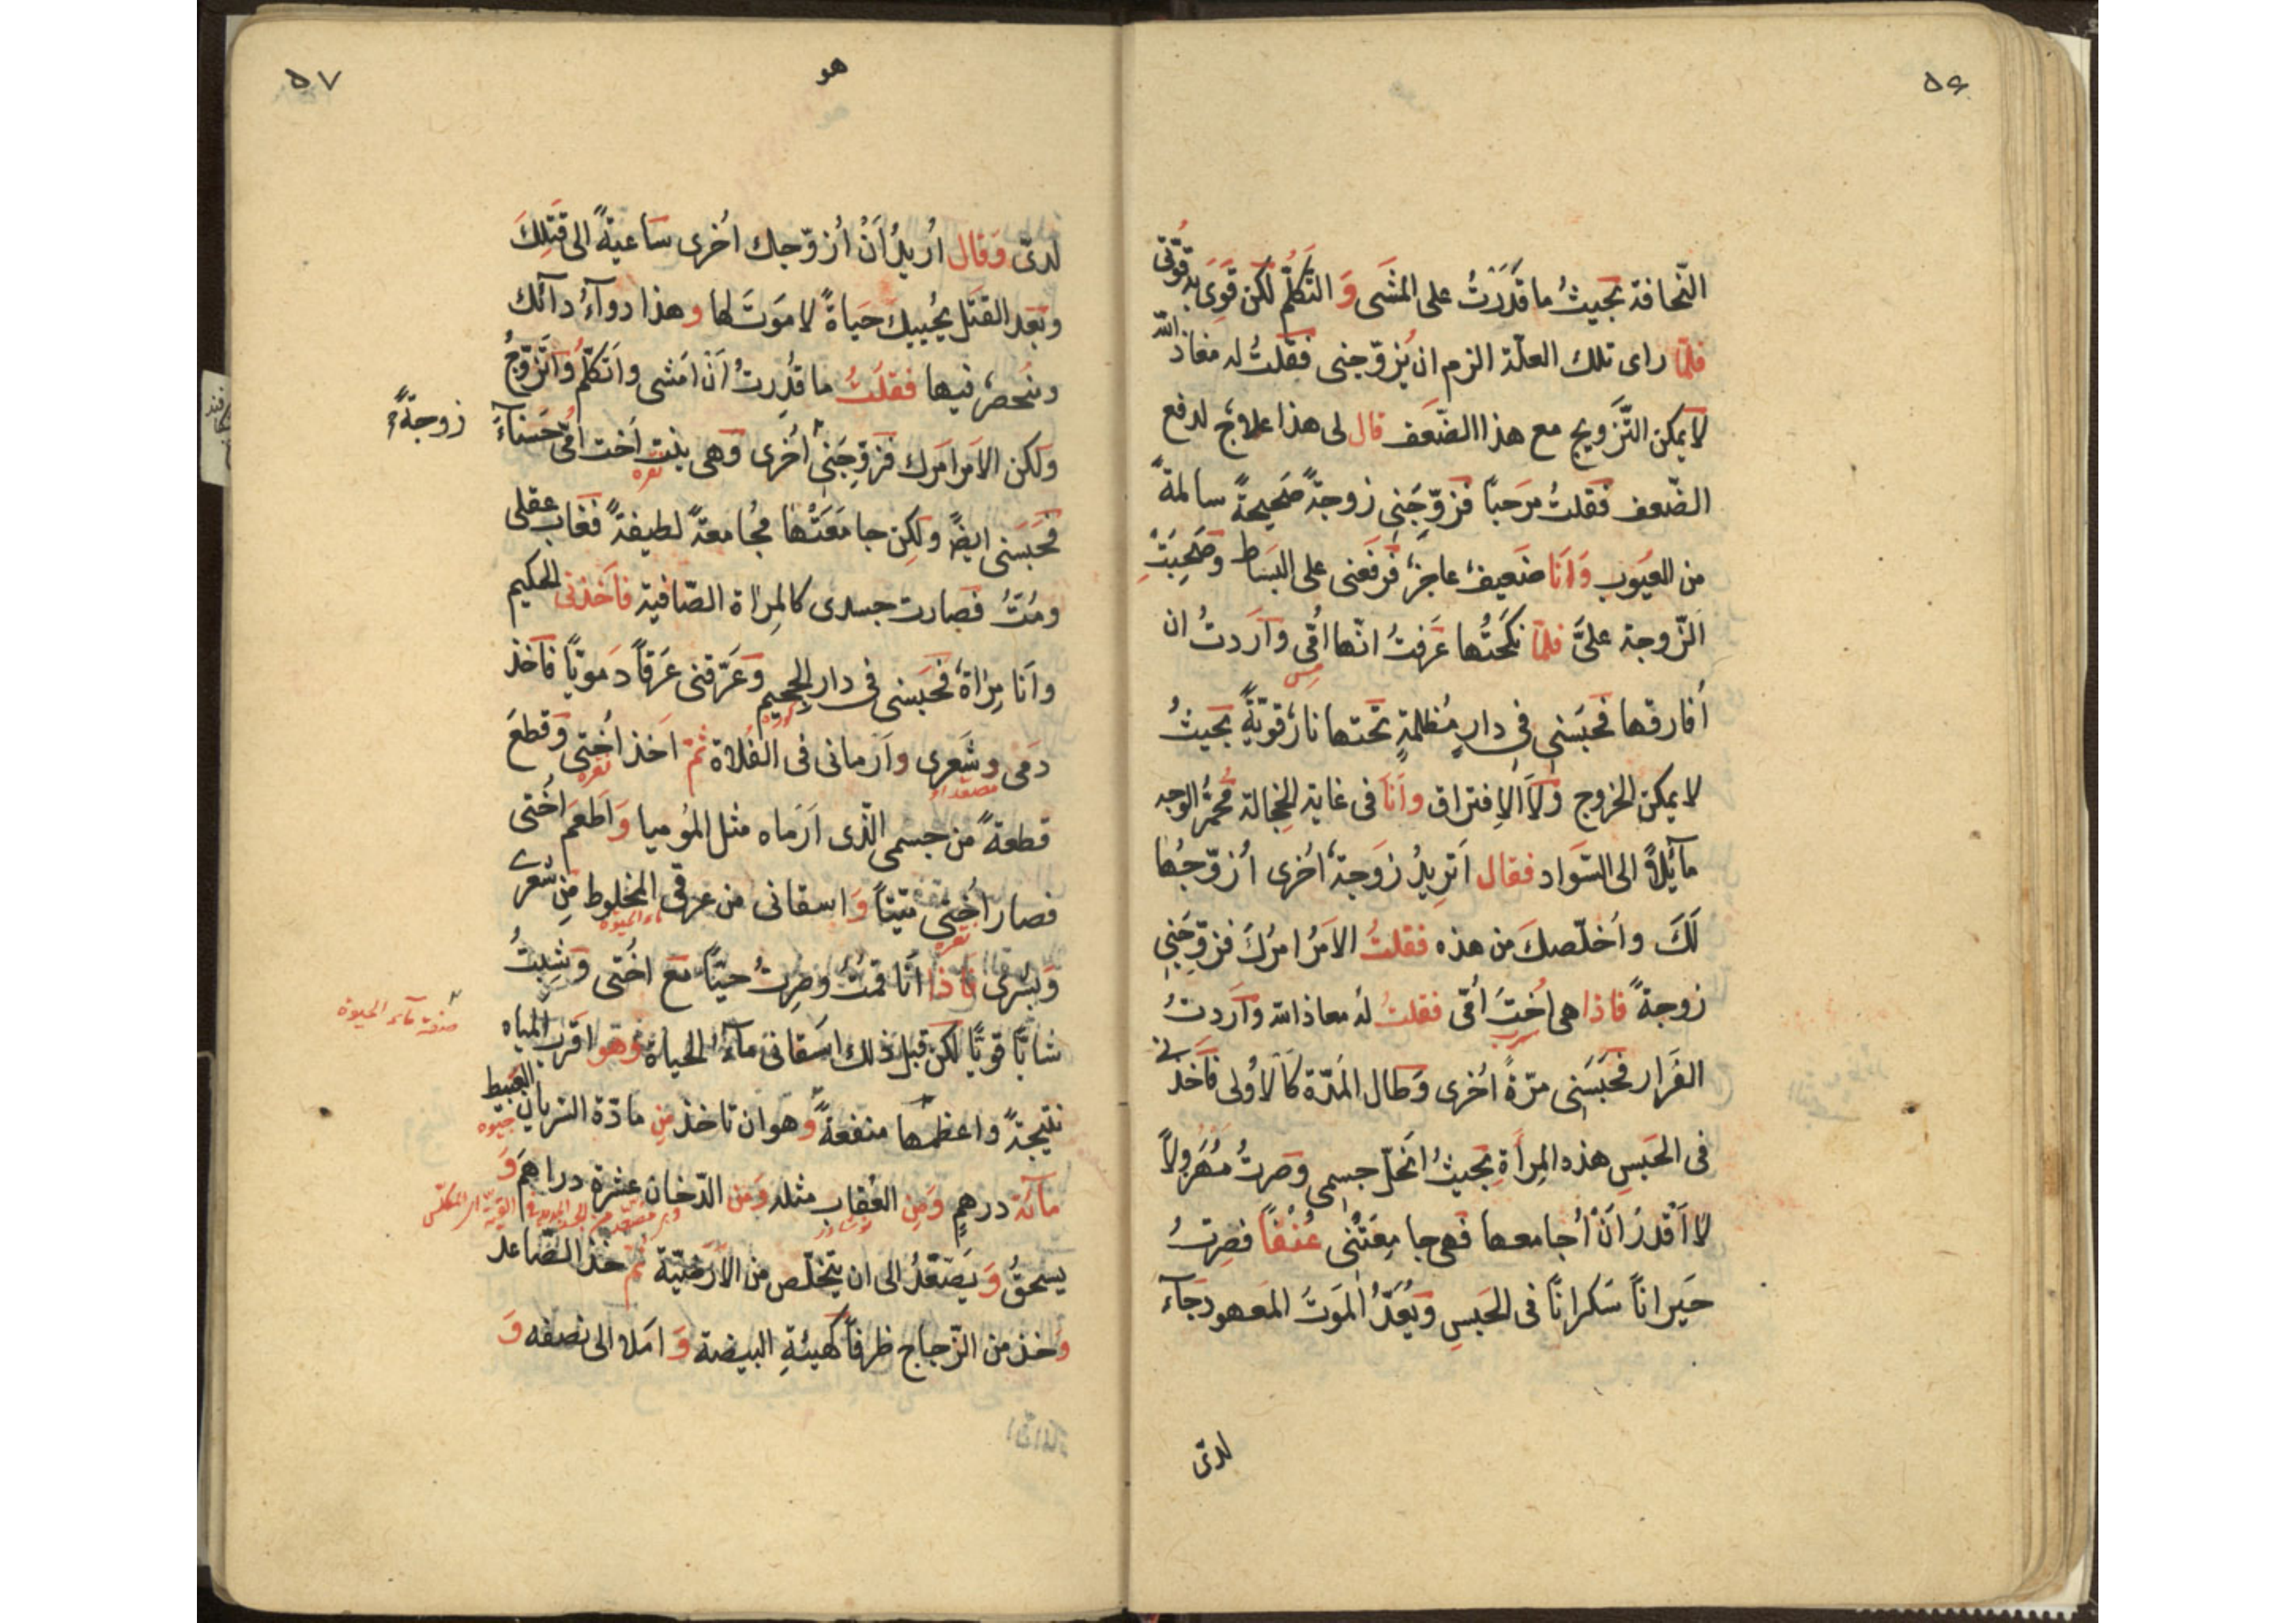 ٥٦
النّحافة بحيثُ ما قَدَرْتُ على المشَى وَ التَّكلُّم لكن قَوِىَ به قُوَّتى
فلمّا راى تلك العلّة الزم ان يُزوّجنى فقلتُ له معاذ الله
لا يمكن التَّزويج مع هذا الضّعف قال لى هذا علاجٌ لدفع
الضّعف فقلتُ مرَحبًا فزوِّجَنى زوجةً صَحيحةً سالمةً
من العيُوب وَ اَنَا ضَعيفٌ عاجزٌ فرفَعنى على البَسَاط وصَحِبَتْ
الزّوجة علىَّ فلمّا نكحَتُها عَرَفتُ انّها اُمّى وَ اَرَدتُ ان
مس
اُفارقها فحَبَسَنى فى دارٍ مُظلمةٍ تحَتها نارٌ قويّةٌ بحَيثُ
لا يمكن الخروج وَلَا الاِفتراق وَ اَنَا فى غاية الخِجالة مُحمَرُّ الوجه
مآئلاً الى السّواد فقال اَتريدُ زَوجةً اُخرى اُزوّجُها
لَكَ واُخلّصكَ من هذه فقلتُ الاَمَرُ امرُكَ فزوّجَنى
زوجةً فاذا هى اُختُ اُمّى فقلتُ له معاذ الله وَ اَرَدتُ
سرب
الفَرار فحَبَسَنى مرّةً اُخرى وَطال المَدّة كَالاُولى فاَخذَنى
فى الحَبسِ هذه المِراَةِ بحَيثُ انحَلّ جسمى وصَرتُ مَهَرُولاً
لا اَقْدرُ اَنْ اُجامعها فهى جامِعَتْنى عُنْفًا فصِرتُ
حَيراناً سَكراناً فى الحَبسِ وَيُعَدُّ المَوتَ المَعهود جَآءَ
لدىّ
٥٧
هو
لدىّ وَقال اُريدُ اَنْ اُزوّجك اُخرى سَاعيةً الى قتلِكَ
وبَعد القتَل يُحييكَ حَيَاةً لا مَوتَ لها وهذا دوآءُ دآئك
ومنحصرٌ فيها فقلتُ ما قُدِرتُ اَنْ اَمشى واَتكلّمُ وَاَتَزوَّجُ
ولكن الاَمر امرك فزوِّجَنى اُخرى وَهى بنت اُخت اُمّى حَسَنآءَ
زوجةً
نقره
فحَبَسَنى ايضًا ولكن جامَعَتْها مجُامعةً لطيفةً فغَابَ عقلى
ومُتُّ فصَارت جسدى كالمِراة الصّافية فاَخذنى الحكيم
وانَا مِراةٌ فحَبَسنى فى دار الجحيم وعَرَّقنى عَرَقاً دَمَويّاً فاَخذ
دَمى وشَعرى واَرَمانى فى الفلاة ثمّ اَخذ اُختى وَقطعَ
نقره
قطعةً من جسمى الّذى اَرَماه مثل المُوميا وَ اَطعَم اُختى
فصار اُختى ميّتاً وَ اسقانى من عرقى المخلوط مِن شعرى
ماء الحيوة
نقره
وَبشَرى فاذا اَنَا قمتُ وَصِرتُ حيّاً مَع اُختى وَشِبتُ
شابّاً قويّاً لكن قبل ذلك اسَقانى مآءُ الحياة وَهو اقرب المياه
صنعة مآء الحيوة
نتيجةً واعظمها منفعةً وهو ان تاخذ مِن مادّة الترياق العبيط
جيوه
مآئة درهمٍ وَمِن العُقاب مثله وَمن الدّخان عشرة دراهَم وَ
نوشادر
يسحقُ وَ يَصَعَّدُ الى ان يتخلّص من الاَرَضيّة ثمّ خذ الصّاعد
وَخذ من الزّجاج ظرفاً كهَيئةِ البيضة وَ املا الى نصفه وَ